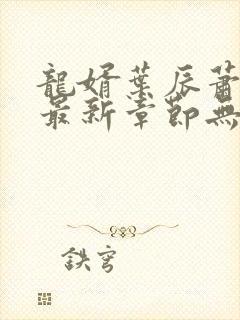 龍婿葉辰蕭
最新章節無
鉄穹